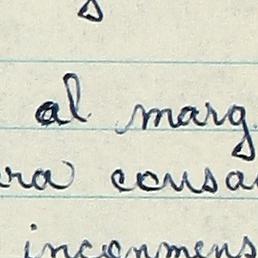 al marg
ra causa
inconmens